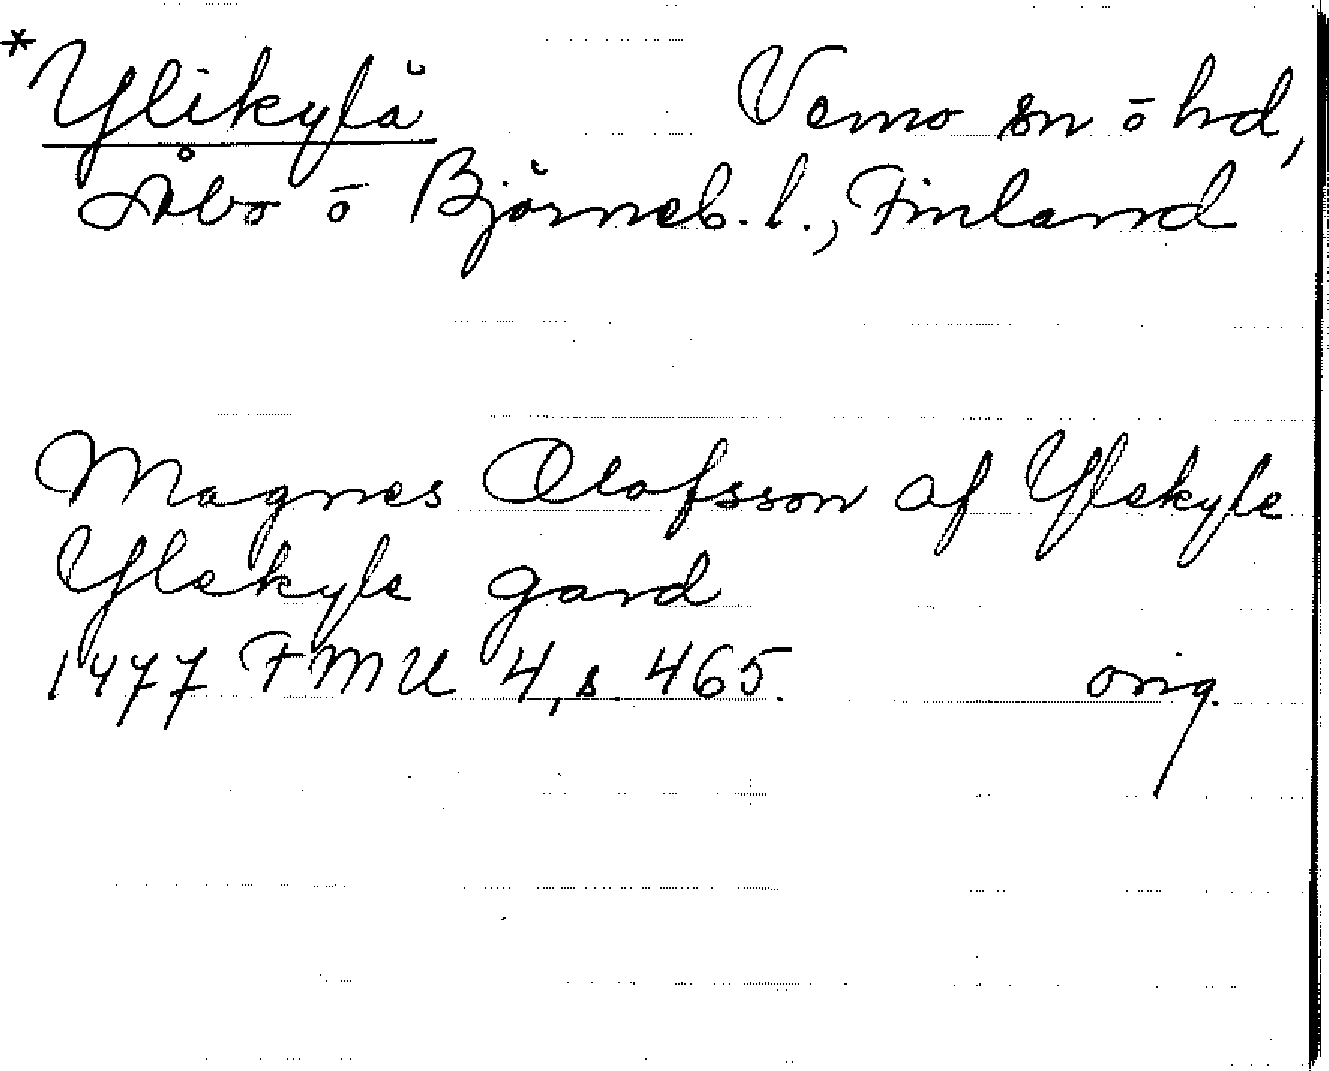 *Ylikylä Vemo sn ō hd,
Åbo ō Björneb. l., Finland
Magnes Olofsson af Ylekyle
Ylekyle gard
1477 FMU 4, s. 465. orig.